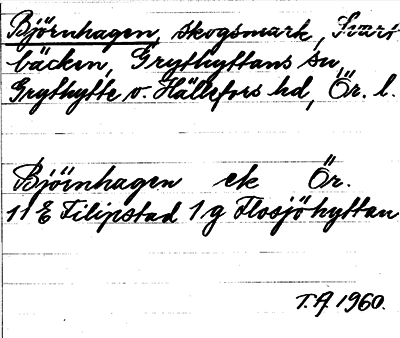 Björnhagen, skogsmark, Svart
bäcken, Grythyttans sn,
Grythytte o. Hällefors hd, Ör. l.
Björnhagen ek Ör.
11 E Filipstad 1 g Flosjöhyttan
T.A. 1960.